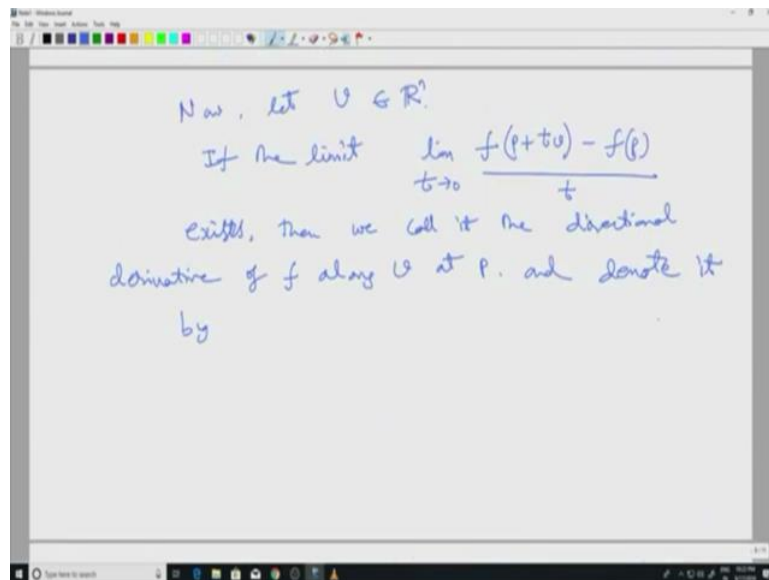 Now, let v ∈ ℝⁿ.
If the limit lim t→0 (f(p+tv) - f(p)) / t
exists, then we call it the directional
derivative of f along v at p. and denote it
by